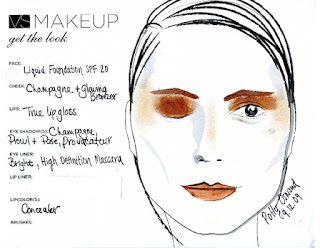 VS MAKEUP
get the look
FACE:
Liquid Foundation SPF 20
CHEEK: Champagne + glowing
Bronzer
LIPS: True lipgloss
EYE SHADOW(S): Champagne,
Prowl + Pose, Provocateur
EYE LINER:
Bright, High Definition Mascara
LIP LINER:
LIPCOLOR(S):
Concealer
BRUSHES:
Polly
9.12.09